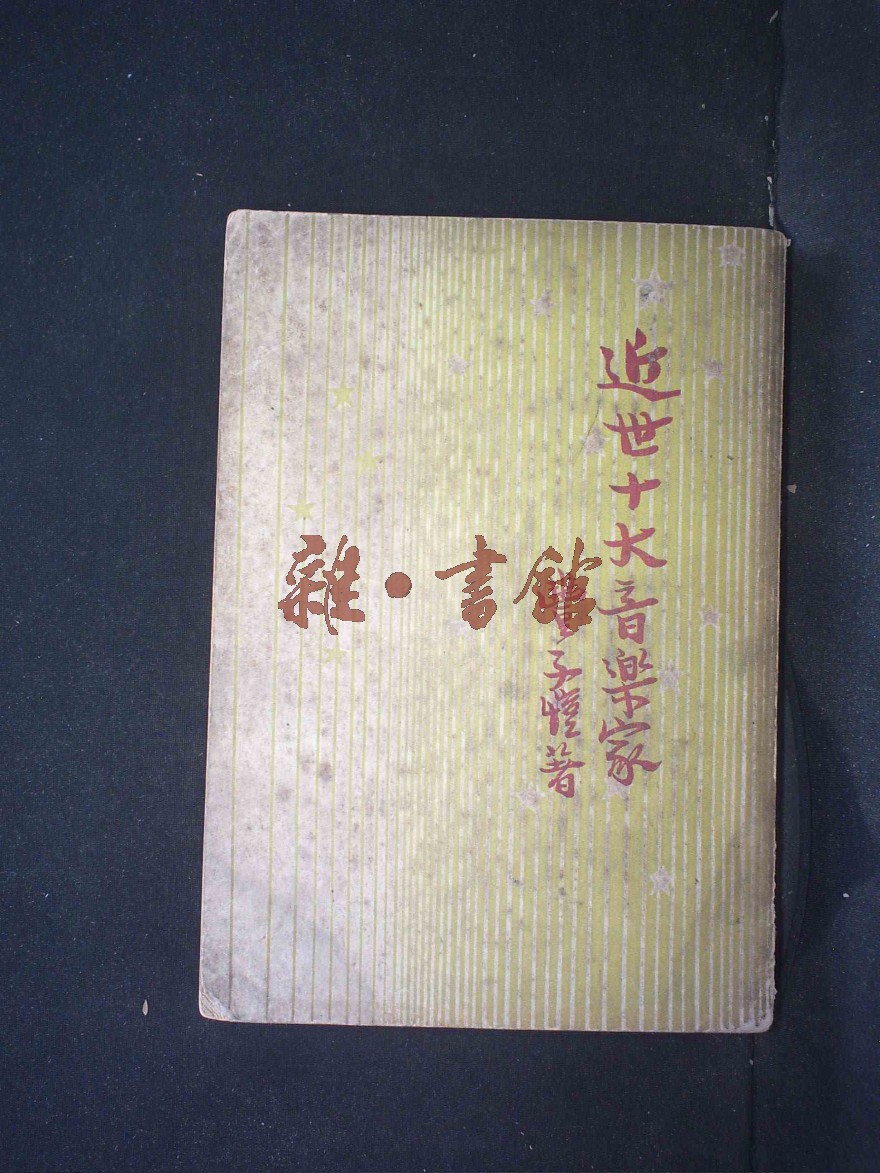 近世十大音樂家
子愷著
雜·書館